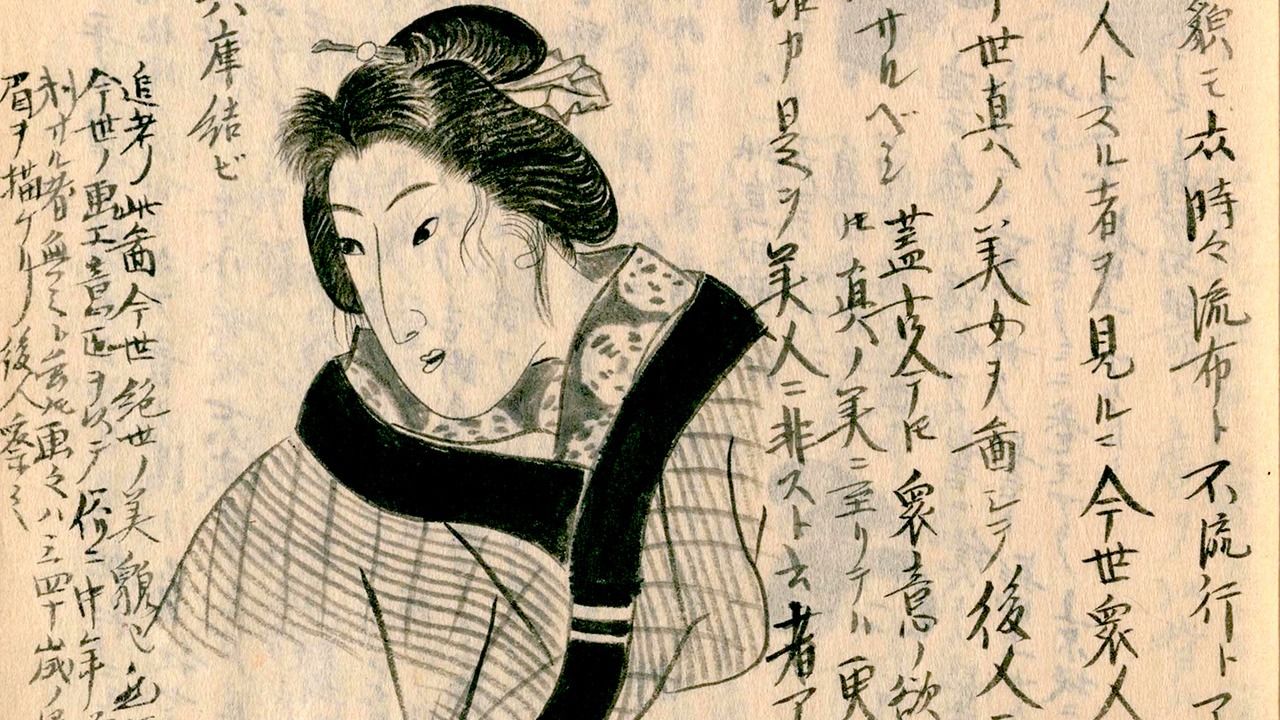 貌モ亦時々流布ト不流行トア
人トスル者ヲ見ルニ今世衆人
世真ノ美女ヲ畵シテ後人ニ
サルベシ 蓋古今人ヒ衆意ノ欲
ヒ真ノ美ニ至リテハ更
カ是ヲ美人ニ非ストス云者ア
兵庫結ビ
追考ノ此畵今世絶世ノ美貌也
今世ノ画工意匠ヲ以テ俗ニ中年
サル者無シト云此画之ハ三四十歳ノ
眉ヲ描ケリ後人察之